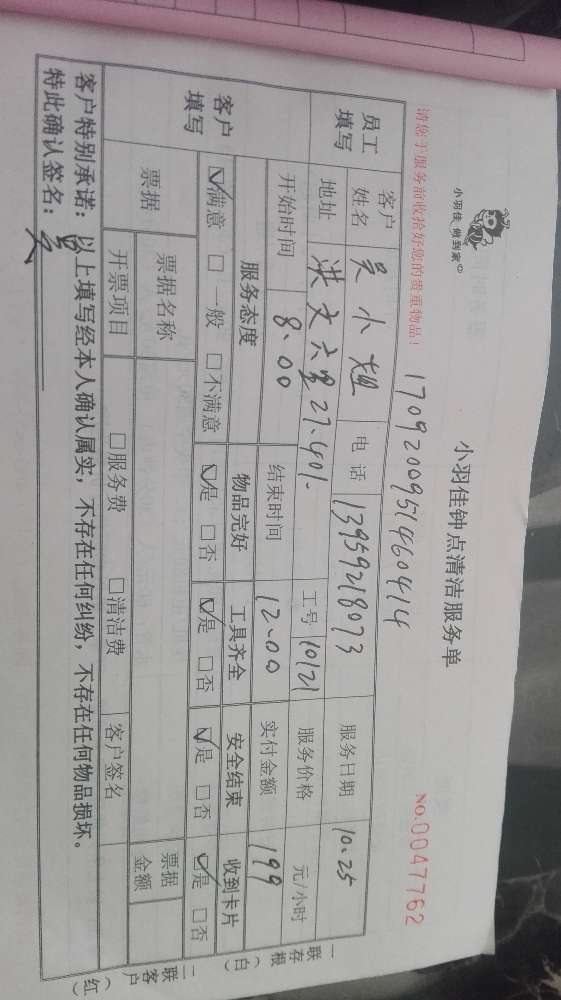 小羽佳 做到家
小羽佳钟点清洁服务单
请您于服务前收拾好您的贵重物品！
17092009514460414
NO.0047762
员工填写 客户姓名 吴小姐 电话 13959218073 服务日期 10.25
地址 洪文六里27.401. 工号 10121 服务价格 元/小时
开始时间 8.00 结束时间 12.00 实付金额 199
客户填写 服务态度 物品完好 工具齐全 安全结束 收到卡片
☑满意 □一般 □不满意 ☑是 □否 ☑是 □否 ☑是 □否 ☑是 □否
票据 票据名称 票据金额
开票项目 □服务费 □清洁费 客户签名
客户特别承诺：以上填写经本人确认属实，不存在任何纠纷，不存在任何物品损坏。
特此确认签名：
一联存根（白）
二联客户（红）